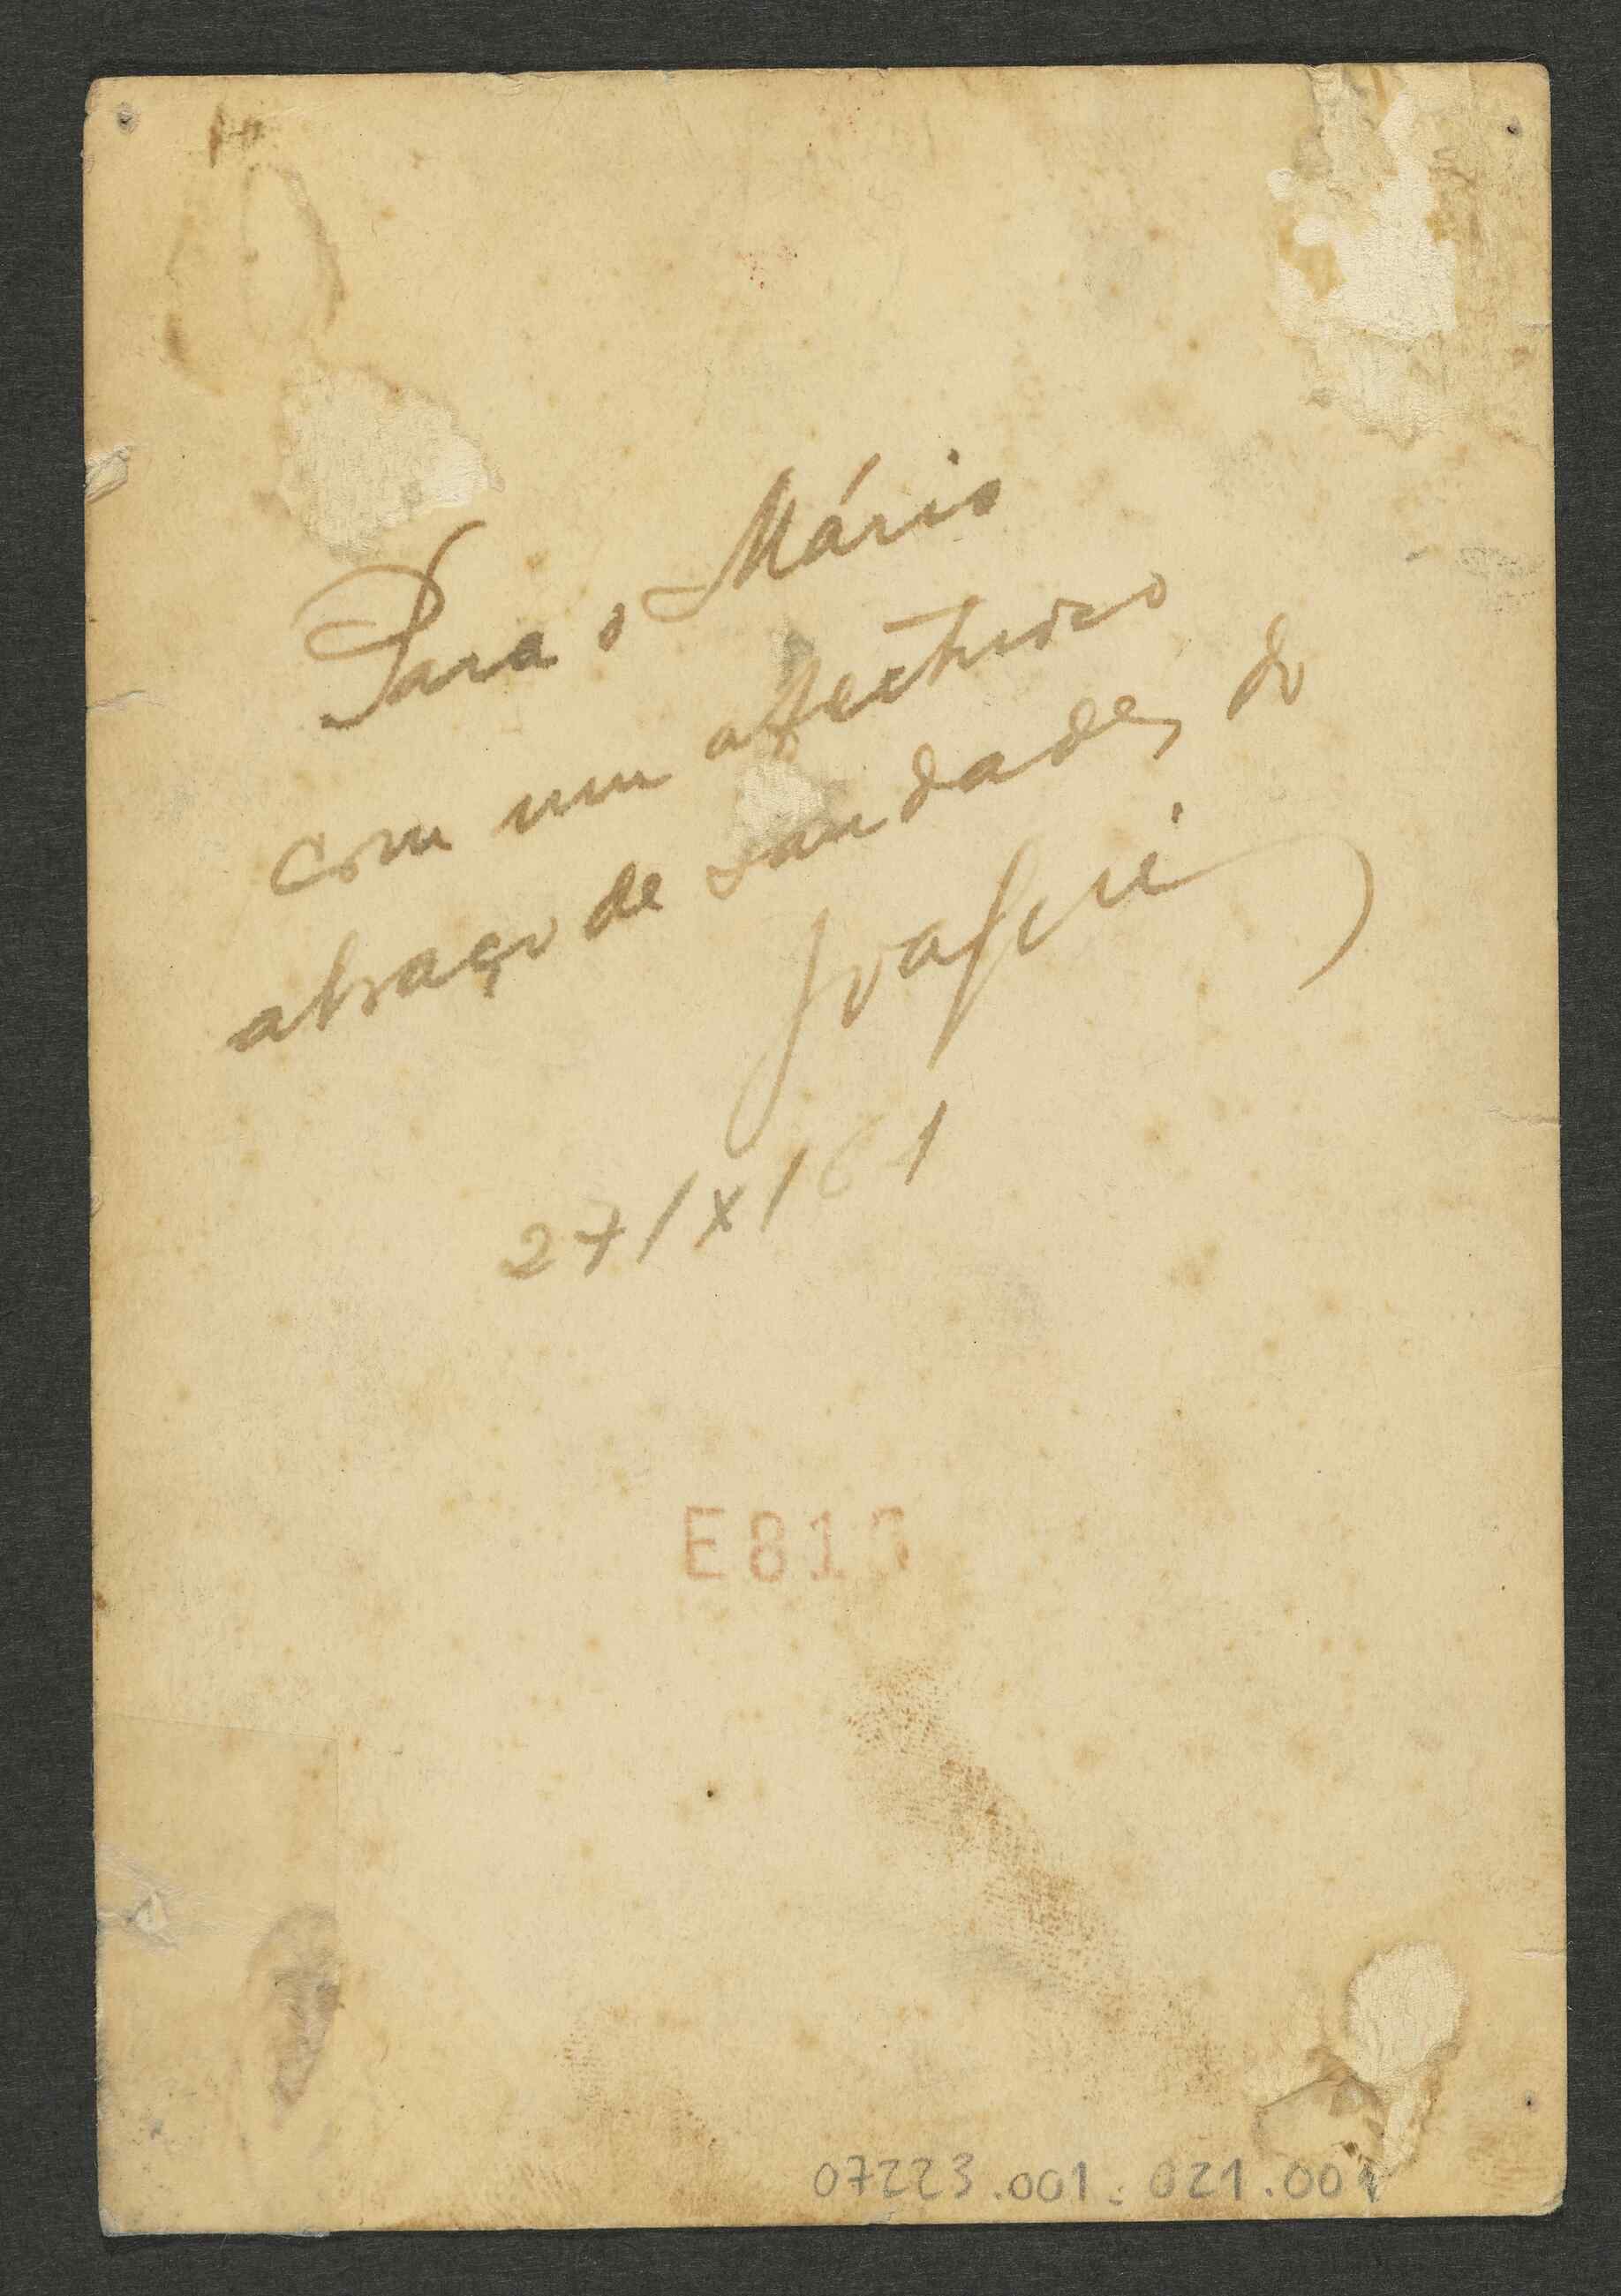 Para o Mário
com um afectuoso
abraço de saudades do
27/X/61
E81
07223.001.021.001